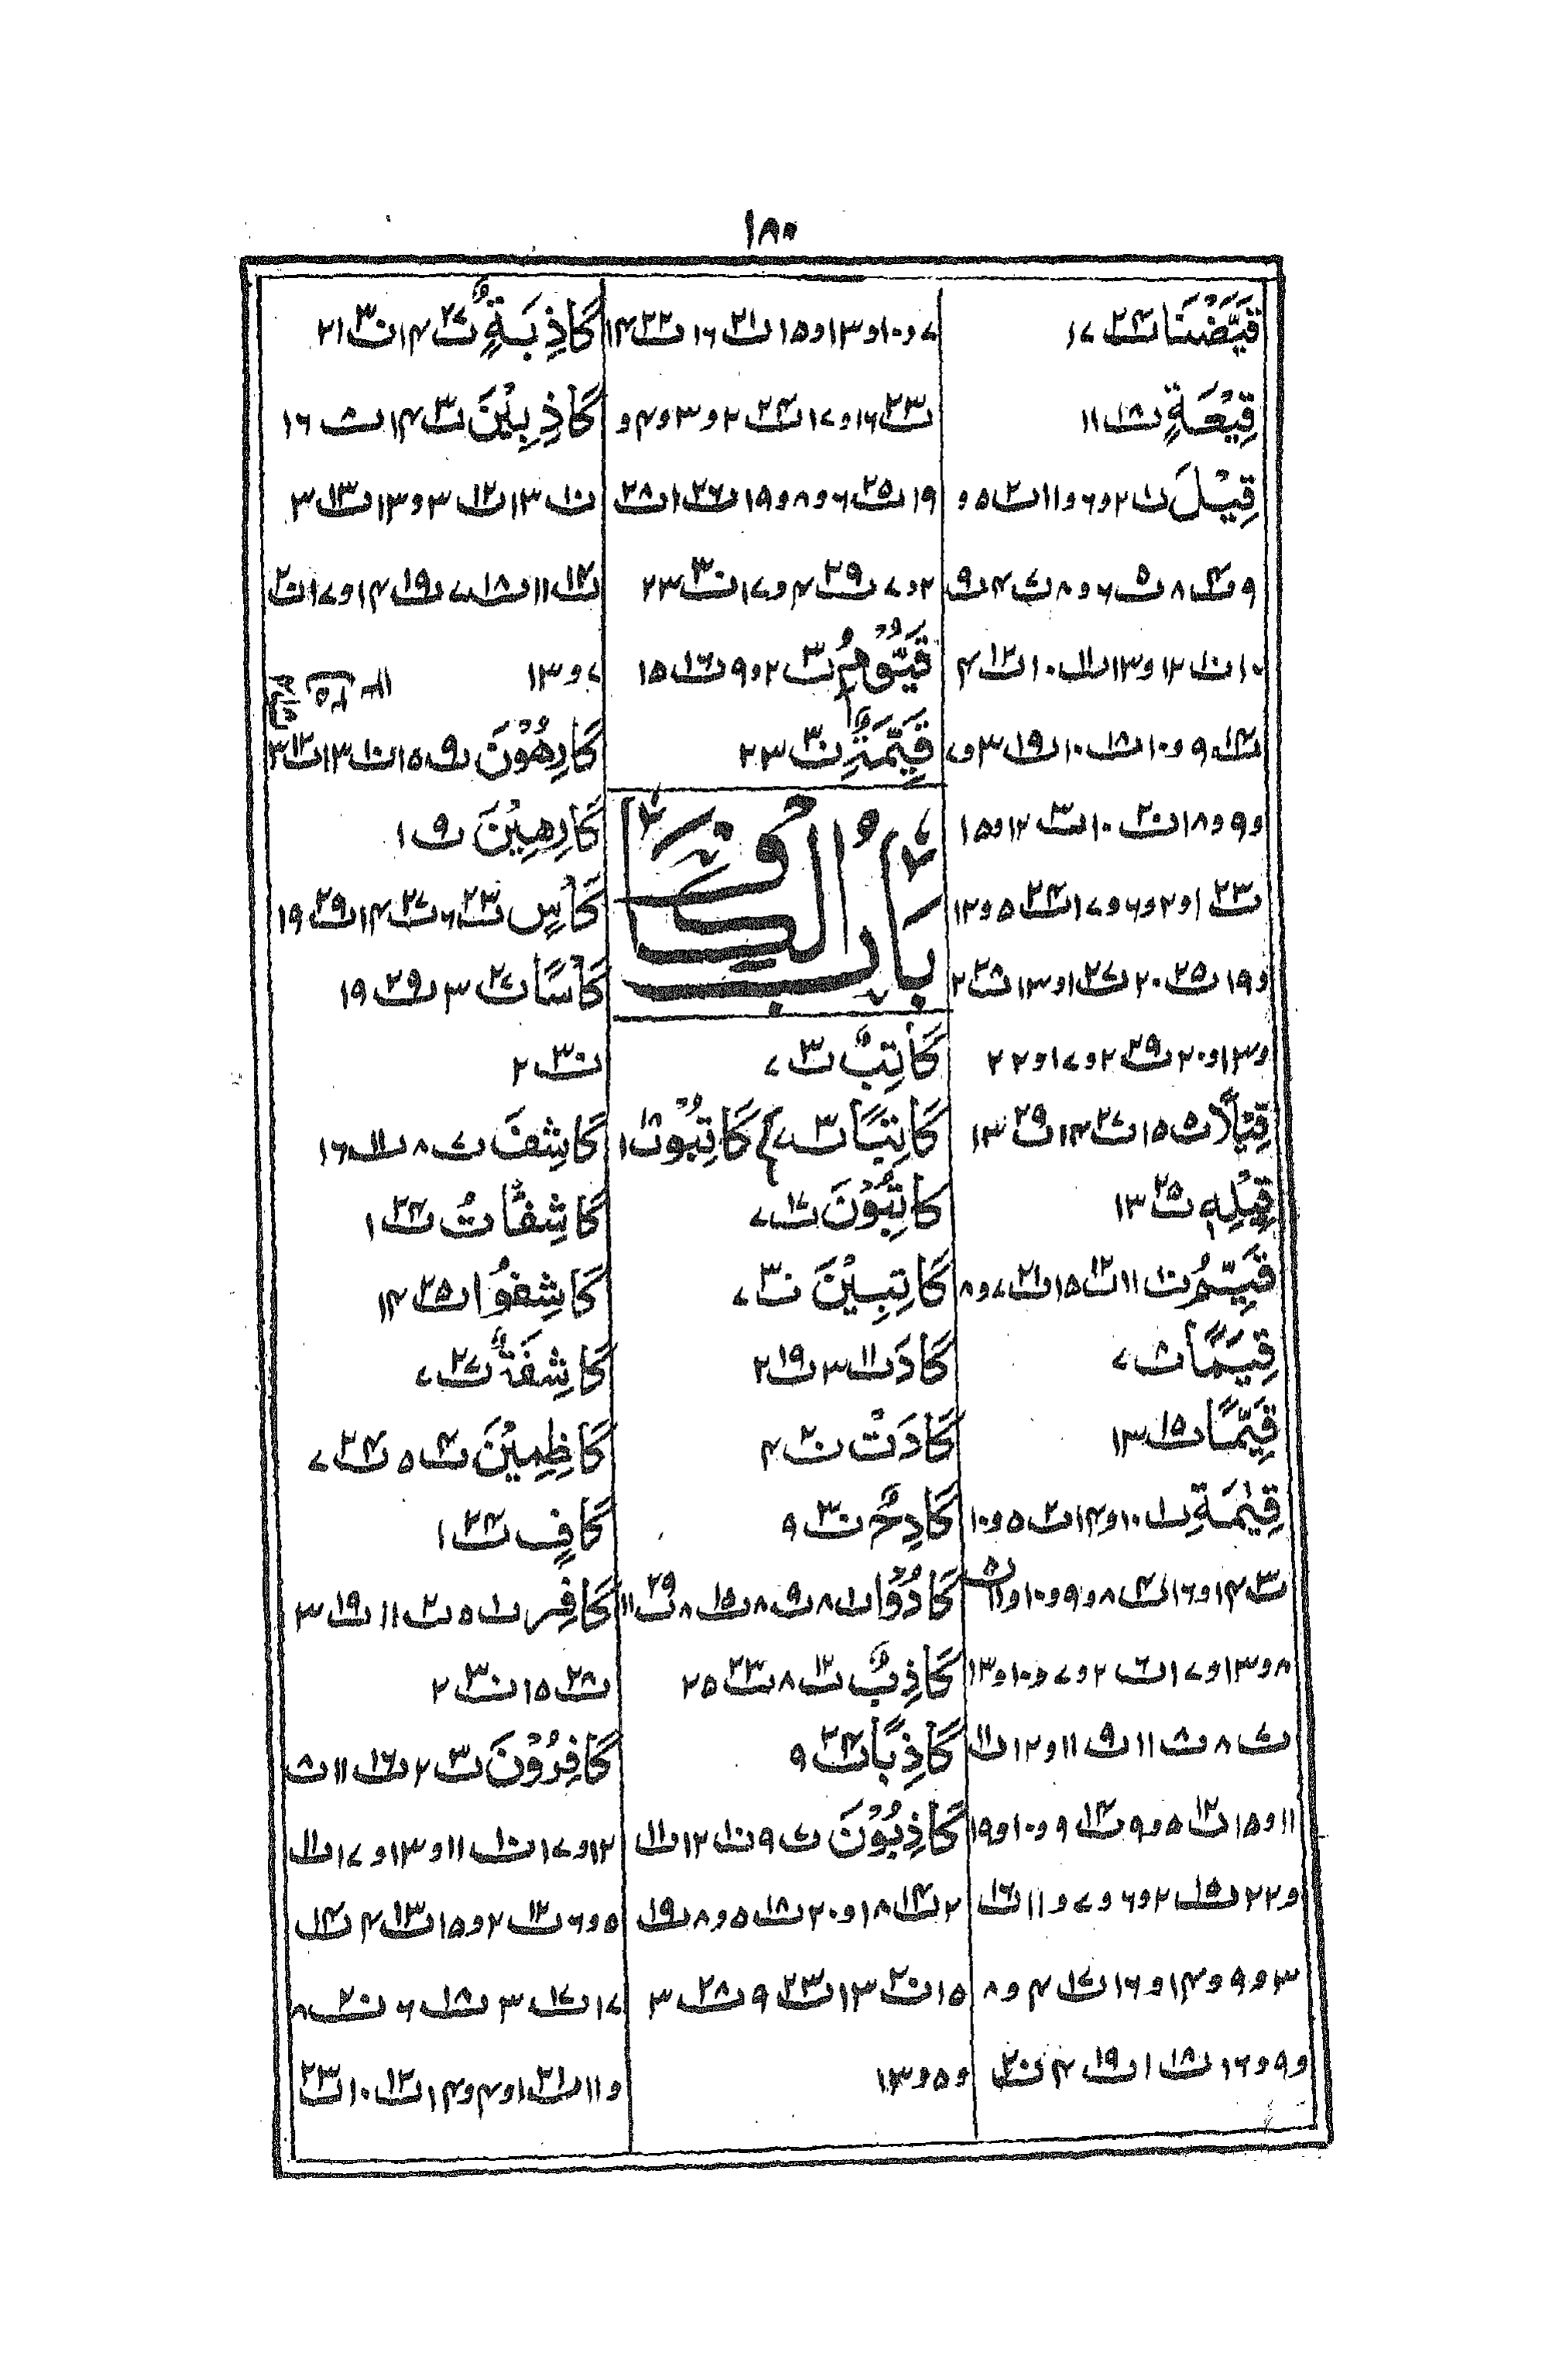 ۱۸۰
قَیَّضْنَا ت۲۴ ۱۷
قِیْعَةٍ ت۱۸ ۱۱
قِیْلَ ت۱ ۲و۶و۱۱ ت۲ ۵ و
۹ ت۴ ۸ ت۵ ۶و۸ ت۷ ۴ ت۹
۱۰ ت۱۰ ۱۲و۱۳ ت۱۱ ۱۰ ت۱۲ ۴
ت۱۴ ۹و۱۰ ت۱۸ ۱۰ ت۱۹ ۳و۷
و۹و۱۸ ت۲۰ ۱۰ ت۳ ۱۲و۱۵
ت۲۳ ۱و۲و۶و۱۷ ت۲۴ ۵و۱۲
و۱۹ ت۲۵ ۲۰ ت۲۷ ۱و۱۳ ت۲۸ ۲
و۱۳و۲۰ ت۲۹ ۲و۱۷و۲۲
قِیْلًا ت۵ ۱۵ ت۲۷ ۱۴ ت۲۹ ۱۳
قِیْلِهٖ ت۲۵ ۱۳
قَیِّمُ ت۱۰ ۱۱ ت۱۲ ۱۵ ت۲۱ ۷و۸
قِیَمًا ت۸ ۷
قَیِّمًا ت۱۵ ۱۳
قِیٰمَةِ ت۱ ۱۰و۱۴ ت۲ ۵و۱۰
ت۳ ۱۴و۱۶ ت۴ ۸و۹و۱۰و۱۱ ت۵
۸و۱۳و۱۷ ت۶ ۲و۷و۱۰و۱۳
ت۷ ۸ ت۸ ۱۱ ت۹ ۱۱و۱۲ ت۱۱
۱۱و۱۵ ت۱۲ ۵و۹ ت۱۴ ۹و۱۰و۱۹
و۲۲ ت۱۵ ۲و۶و۷و۱۱ ت۱۶
۳و۹و۱۴و۱۶ ت۱۷ ۴و۸
و۹و۱۶ ت۱۸ ۱ ت۱۹ ۴ ت۲۰
۷و۱۰و۱۳و۱۵ ت۲۱ ۱۶ ت۲۲ ۱۴
ت۲۳ ۱۶و۱۷ ت۲۴ ۲و۳و۴و
۱۹ ت۲۵ ۶و۸و۱۹ ت۲۶ ۱ ت۲۸
۲و۷ ت۲۹ ۴و۱۷ ت۳۰ ۲۳
قَیُّوْمُ ت۳ ۲و۹ ت۱۶ ۱۵
قَیِّمَةِ ت۳۰ ۲۳
بَابُ الْكَافِ
كَاتِبٌ ت۳ ۷
كَاتِبًا ت۳ ۷ كَاتِبُوْ ت۱۸ ۱
كَاتِبُوْنَ ت۱۷ ۷
كَاتِبِیْنَ ت۳۰ ۷
كَادَ ت۱۱ ۳ ت۱۹ ۲
كَادَتْ ت۲۰ ۴
كَادِحٌ ت۳۰ ۹
كَادُوْا ت۱ ۸ ت۹ ۸ ت۱۵ ۸ ت۲۹ ۱۱
كَاذِبٌ ت۱۲ ۸ ت۲۳ ۲۵
كَاذِبًا ت۲۴ ۹
كَاذِبُوْنَ ت۷ ۹ ت۱۰ ۱۲ ت۱۱
۲ ت۱۴ ۱۸و۲۰ ت۱۸ ۵و۸ ت۱۹
۱۵ ت۲۰ ۱۳ ت۲۳ ۹ ت۲۸ ۳
و۵و۱۳
كَاذِبَةٍ ت۲۷ ۱۴ ت۳۰ ۲۱
كَاذِبِیْنَ ت۳ ۱۴ ت۸ ۱۶
ت۱۰ ۱۳ ت۱۲ ۳و۱۳ ت۱۳ ۳
ت۱۴ ۱۱ ت۱۸ ۷ ت۱۹ ۱۴و۱۷ ت۲۰
۷و۱۳
كَارِهُوْنَ ت۹ ۱۵ ت۱۰ ۱۳ ت۱۲ ۳
كَارِهِیْنَ ت۹ ۱
كَأْسٍ ت۲۳ ۶ ت۲۷ ۱۴ ت۲۹ ۱۹
كَأْسًا ت۲۷ ۳ ت۲۹ ۱۹
ت۳۰ ۲
كَاشِفَ ت۷ ۸ ت۱۱ ۱۶
كَاشِفَاتُ ت۲۴ ۱
كَاشِفُوا ت۲۵ ۱۴
كَاشِفَةٌ ت۲۷ ۷
كَاظِمِیْنَ ت۴ ۵ ت۲۴ ۷
كَافٍ ت۲۴ ۱
كَافِر ت۱ ۵ ت۲ ۱۱ ت۱۹ ۳
ت۲۸ ۱۵ ت۳۰ ۲
كَافِرُوْنَ ت۳ ۲ ت۶ ۱۱ ت۸
۱۲و۱۷ ت۱۰ ۱۱و۱۳و۱۷ ت۱۱
۵و۶ ت۱۲ ۲و۱۵ ت۱۳ ۴ ت۱۴
۱۷ ت۱۷ ۳ ت۱۸ ۶ ت۲۰ ۸
و۱۱ ت۲۱ ۱و۴و۱۴ ت۱۲ ۱۰ ت۲۳